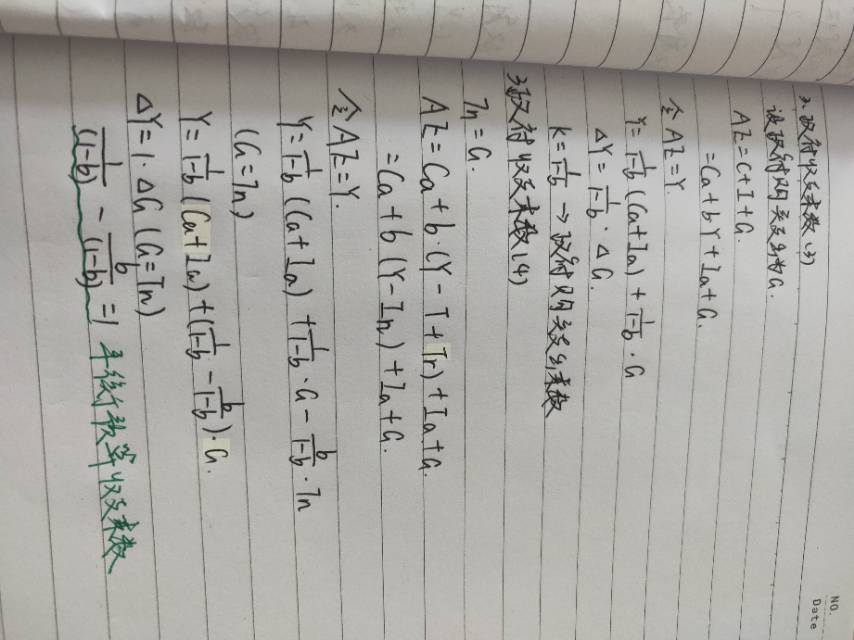 NO.
Date
2. 政府收支乘数(3)
设政府购买支出为G.
AE=C+I+G.
=Ca+bY+Ia+G.
令AE=Y.
Y=1/1-b (Ca+Ia) + 1/1-b · G
ΔY=1/1-b · ΔG.
k=1/1-b → 政府购买支出乘数
3. 政府收支乘数(4)
Tn=G.
AE=Ca+b·(Y-T+Tr)+Ia+G.
=Ca+b(Y-Tn)+Ia+G.
令AE=Y.
Y=1/1-b (Ca+Ia) + 1/1-b · G - b/1-b · Tn
(G=Tn)
Y=1/1-b (Ca+Ia)+(1/1-b - b/1-b)·G.
ΔY=1·ΔG (G=Tn)
1/(1-b) - b/(1-b) =1 平衡预算收支乘数